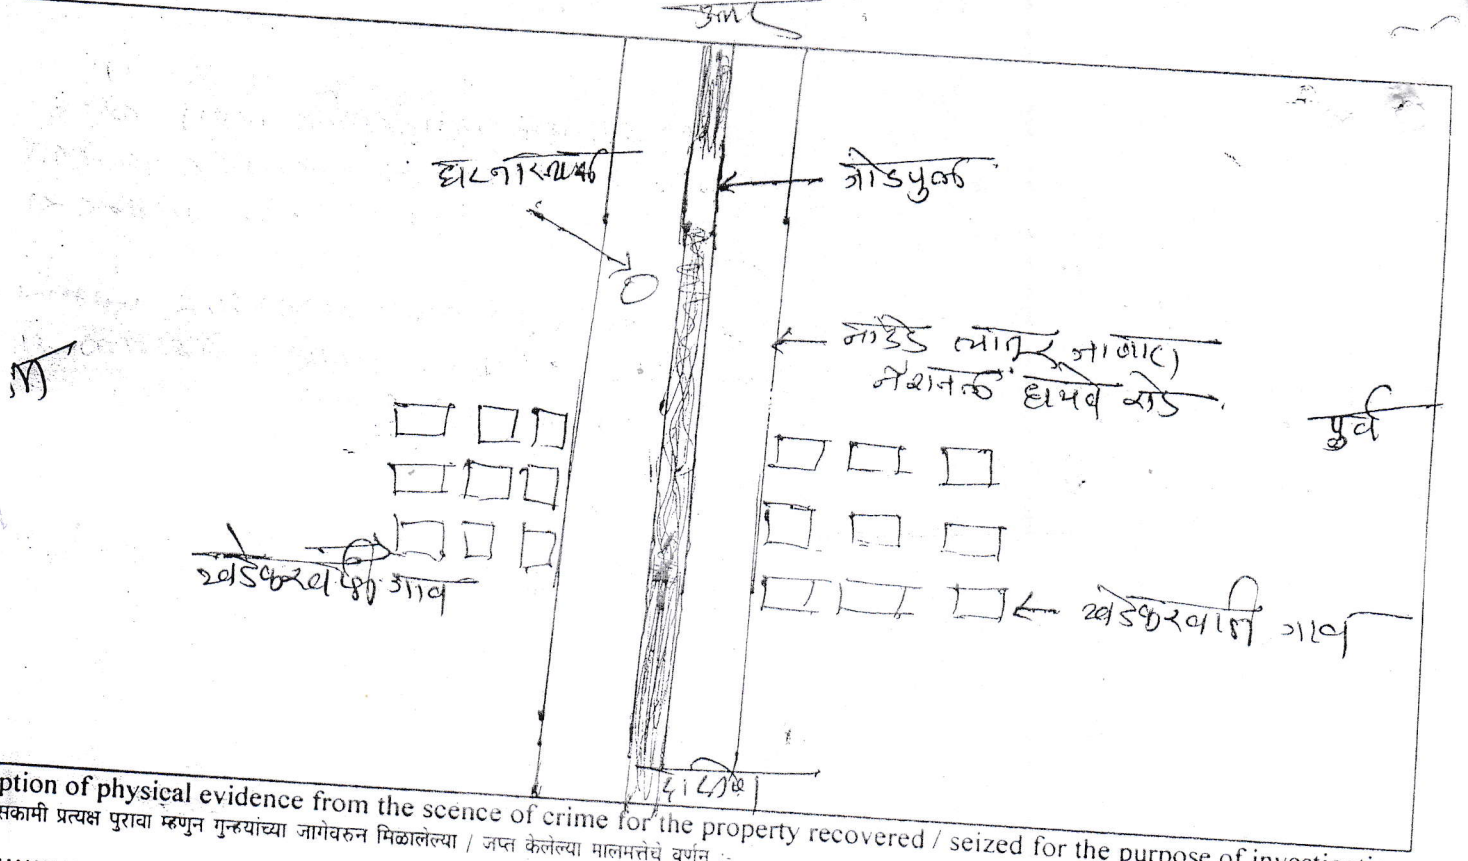 उत्तर
घटनास्थळ
गोडपुल
नांदेड लातूर
नॅशनल हायवे रोड
पुर्व
खडेकरवाडी गाव
खडेकरवाडी गाव
दक्षिण
ption of physical evidence from the scence of crime for the property recovered / seized for the purpose of
सकामी प्रत्यक्ष पुरावा म्हणुन गुन्हयांच्या जागेवरुन मिळालेल्या / जप्त केलेल्या मालमत्तेचे वर्णन :-